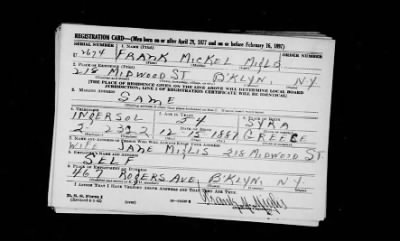 REGISTRATION CARD—(Men born on or after April 28, 1877 and on or before February 16, 1897)
SERIAL NUMBER 1. NAME (Print) ORDER NUMBER
FRANK MICKEL MIGLIS
(First) (Middle) (Last)
2. PLACE OF RESIDENCE (Print)
218 MIDWOOD ST B'KLYN, N.Y.
(Number and street) (Town, township, village, or city) (County) (State)
[THE PLACE OF RESIDENCE GIVEN ON THE LINE ABOVE WILL DETERMINE LOCAL BOARD
JURISDICTION; LINE 2 OF REGISTRATION CERTIFICATE WILL BE IDENTICAL]
3. MAILING ADDRESS
SAME
4. TELEPHONE 5. AGE IN YEARS 6. PLACE OF BIRTH
INGERSOL 54
DATE OF BIRTH
2 2392 12 15 1887 GREECE
7. NAME AND ADDRESS OF PERSON WHO WILL ALWAYS KNOW YOUR ADDRESS
WIFE JANE MIGLIS 218 MIDWOOD ST
8. EMPLOYER'S NAME AND ADDRESS
SELF
9. PLACE OF EMPLOYMENT OR BUSINESS
467 ROGERS AVE, B'KLYN, N.Y.
I AFFIRM THAT I HAVE VERIFIED ABOVE ANSWERS AND THAT THEY ARE TRUE.
D. S. S. Form 1